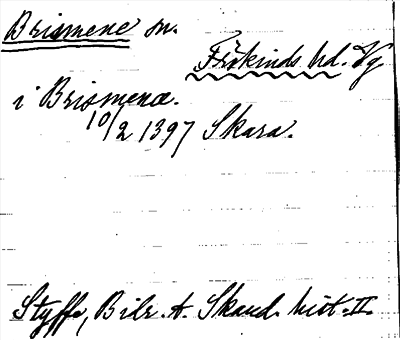 Brismene sn.
Frökinds hd. Vg
i Brismenæ.
10/2 1397 Skara.
Styffe, Bidr. t. Skand. hist. II.